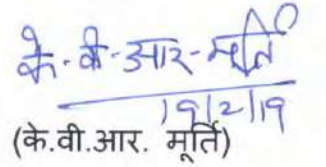 के-वी-आर-मूर्ति
19/2/19
(के.वी.आर. मूर्ति)